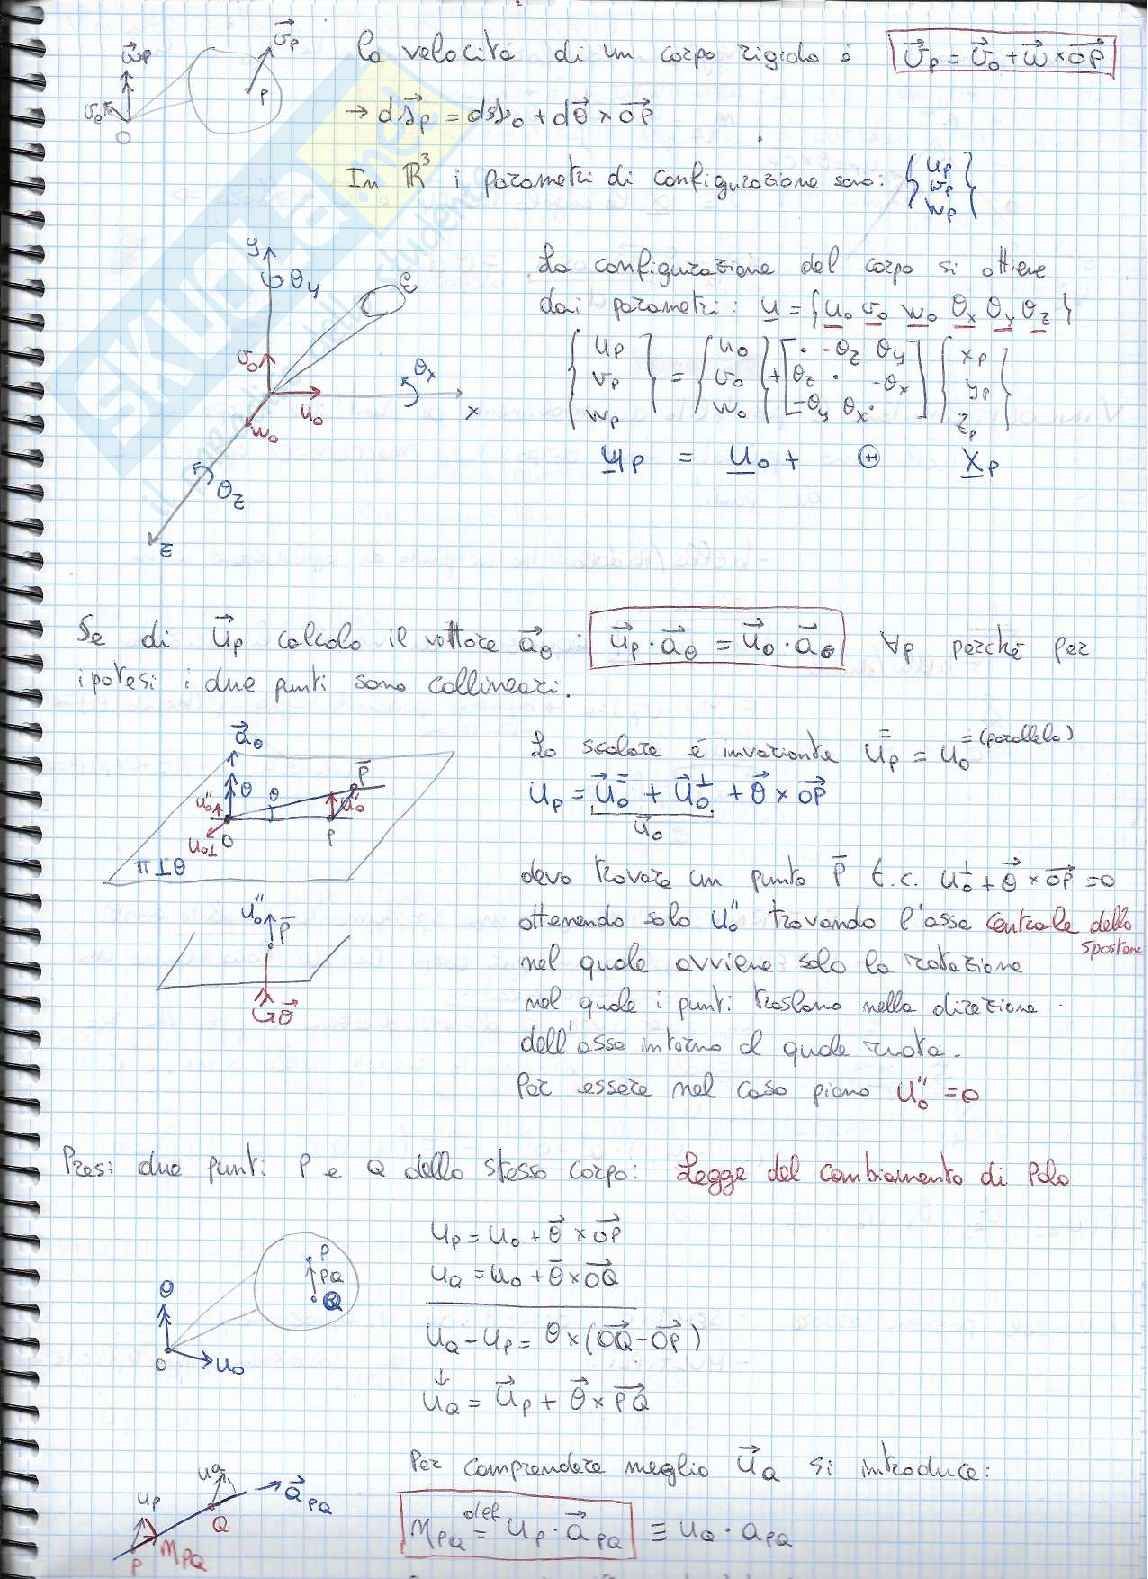 La velocità di un corpo rigido è v⃗_P = v⃗_o + ω⃗ × OP⃗
→ ds⃗_P = ds_o + dθ⃗ × OP⃗
In ℝ³ i parametri di configurazione sono: { u_P v_P w_P }
La configurazione del corpo si ottiene
dai parametri: u = { u_o v_o w_o θ_x θ_y θ_z }
{ u_P v_P w_P } = { u_o v_o w_o } + [ · -θ_z θ_y ; θ_z · -θ_x ; -θ_y θ_x · ] { x_P y_P z_P }
u_P = u_o + Θ x_P
Se di u⃗_P calcolo il vettore a⃗_θ : u⃗_P · a⃗_θ = u⃗_o · a⃗_θ ∀p perché per
ipotesi i due punti sono collineari.
Lo scalare è invariante u_P^= = u_o^= (parallelo)
u_P = u⃗_o^= + u⃗_o^⊥ + θ⃗ × OP⃗
u⃗_o
devo trovare un punto P̄ t.c. u_o^⊥ + θ⃗ × OP⃗ = 0
ottenendo solo u_o'' trovando l'asse centrale dello spostam
nel quale avviene solo la rotazione
nel quale i punti traslano nella direzione
dell'asse intorno al quale ruota.
Per essere nel caso piano u_o'' = 0
Presi due punti P e Q dello stesso corpo: Legge del cambiamento di Polo
u_P = u_o + θ⃗ × OP⃗
u_Q = u_o + θ⃗ × OQ⃗
u_Q - u_P = θ × (OQ⃗ - OP⃗)
↓
u_Q = u⃗_P + θ⃗ × PQ⃗
Per comprendere meglio u⃗_Q si introduce:
m_PQ =^def u_P · a⃗_PQ ≡ u_Q · a_PQ
ω⃗_P
v⃗_P
v_o
P
O
y
θ_y
C
v_o
θ_x
u_o
x
w_o
θ_z
z
a⃗_θ
θ
θ
P̄
u_o''
u_o''
u_o⊥
O
P
π⊥θ
u_o''
P̄
θ⃗
P
PQ
Q
θ
O
u_o
u_Q
a⃗_PQ
u_P
Q
P
m_PQ
SKUOLA.net